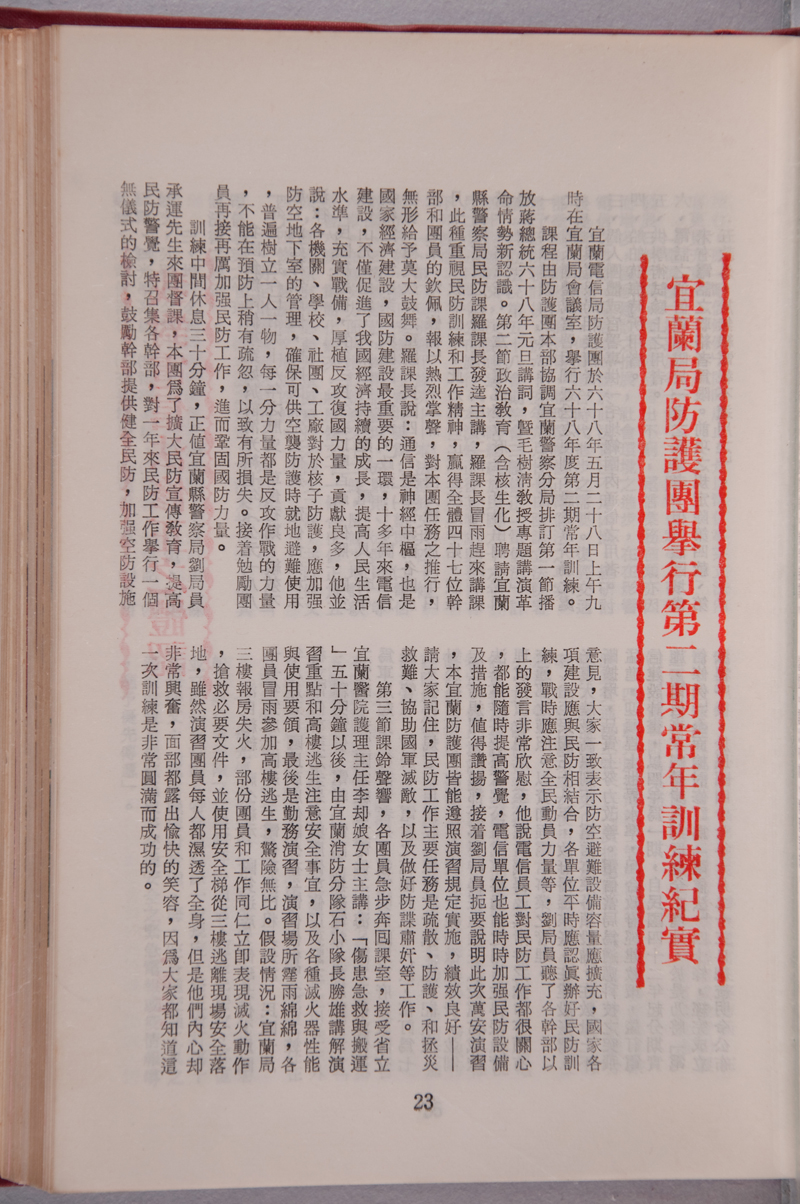 宜蘭局防護團舉行第二期常年訓練紀實
宜蘭電信局防護團於六十八年五月二十八日上午九
時在宜蘭局會議室，舉行六十八年度第二期常年訓練。
課程由防護團本部協調宜蘭警察分局排訂第一節播
放蔣總統六十八年元旦講詞，暨毛樹淸教授專題講演革
命情勢新認識。第二節政治教育（含核生化）聘請宜蘭
縣警察局民防課羅課長發逵主講，羅課長冒雨趕來講課
，此種重視民防訓練和工作精神，贏得全體四十七位幹
部和團員的欽佩，報以熱烈掌聲，對本團任務之推行，
無形給予莫大鼓舞。羅課長說：通信是神經中樞，也是
國家經濟建設，國防建設最重要的一環，十多年來電信
建設，不僅促進了我國經濟持續的成長，提高人民生活
水準，充實戰備，厚植反攻復國力量，貢獻良多，他並
說：各機關、學校、社團、工廠對於核子防護，應加强
防空地下室的管理，確保可供空襲防護時就地避難使用
，普遍樹立一人一物，每一分力量都是反攻作戰的力量
，不能在預防上稍有疏忽，以致有所損失。接着勉勵團
員再接再厲加强民防工作，進而鞏固國防力量。
訓練中間休息三十分鐘，正値宜蘭縣警察局劉局員
承運先生來團督課，本團爲了擴大民防宣傳教育，提高
民防警覺，特召集各幹部，對一年來民防工作擧行一個
無儀式的檢討，鼓勵幹部提供健全民防，加强空防設施
意見，大家一致表示防空避難設備容量應擴充，國家各
項建設應與民防相結合，各單位平時應認眞辦好民防訓
練，戰時應注意全民動員力量等，劉局員聽了各幹部以
上的發言非常欣慰，他說電信員工對民防工作都很關心
，都能隨時提高警覺，電信單位也能時時加强民防設備
及措施，値得讚揚，接着劉局員扼要說明此次萬安演習
，本宜蘭防護團皆能遵照演習規定實施，績效良好——
請大家記住，民防工作主要任務是疏散、防護、和拯災
救難、協助國軍滅敵，以及做好防諜肅奸等工作。
第三節課鈴聲響，各團員急步奔囘課室，接受省立
宜蘭醫院護理主任李却娘女士主講：「傷患急救與搬運
」五十分鐘以後，由宜蘭消防分隊石小隊長勝雄講解演
習重點和高樓逃生注意安全事宜，以及各種滅火器性能
與使用要領，最後是勤務演習，演習場所霪雨綿綿，各
團員冒雨參加高樓逃生，驚險無比。假設情況：宜蘭局
三樓報房失火，部份團員和工作同仁立即表現滅火動作
，搶救必要文件，並使用安全梯從三樓逃離現場安全落
地，雖然演習團員每人都濕透了全身，但是他們內心却
非常興奮，面部都露出愉快的笑容，因爲大家都知道這
一次訓練是非常圓滿而成功的。
23